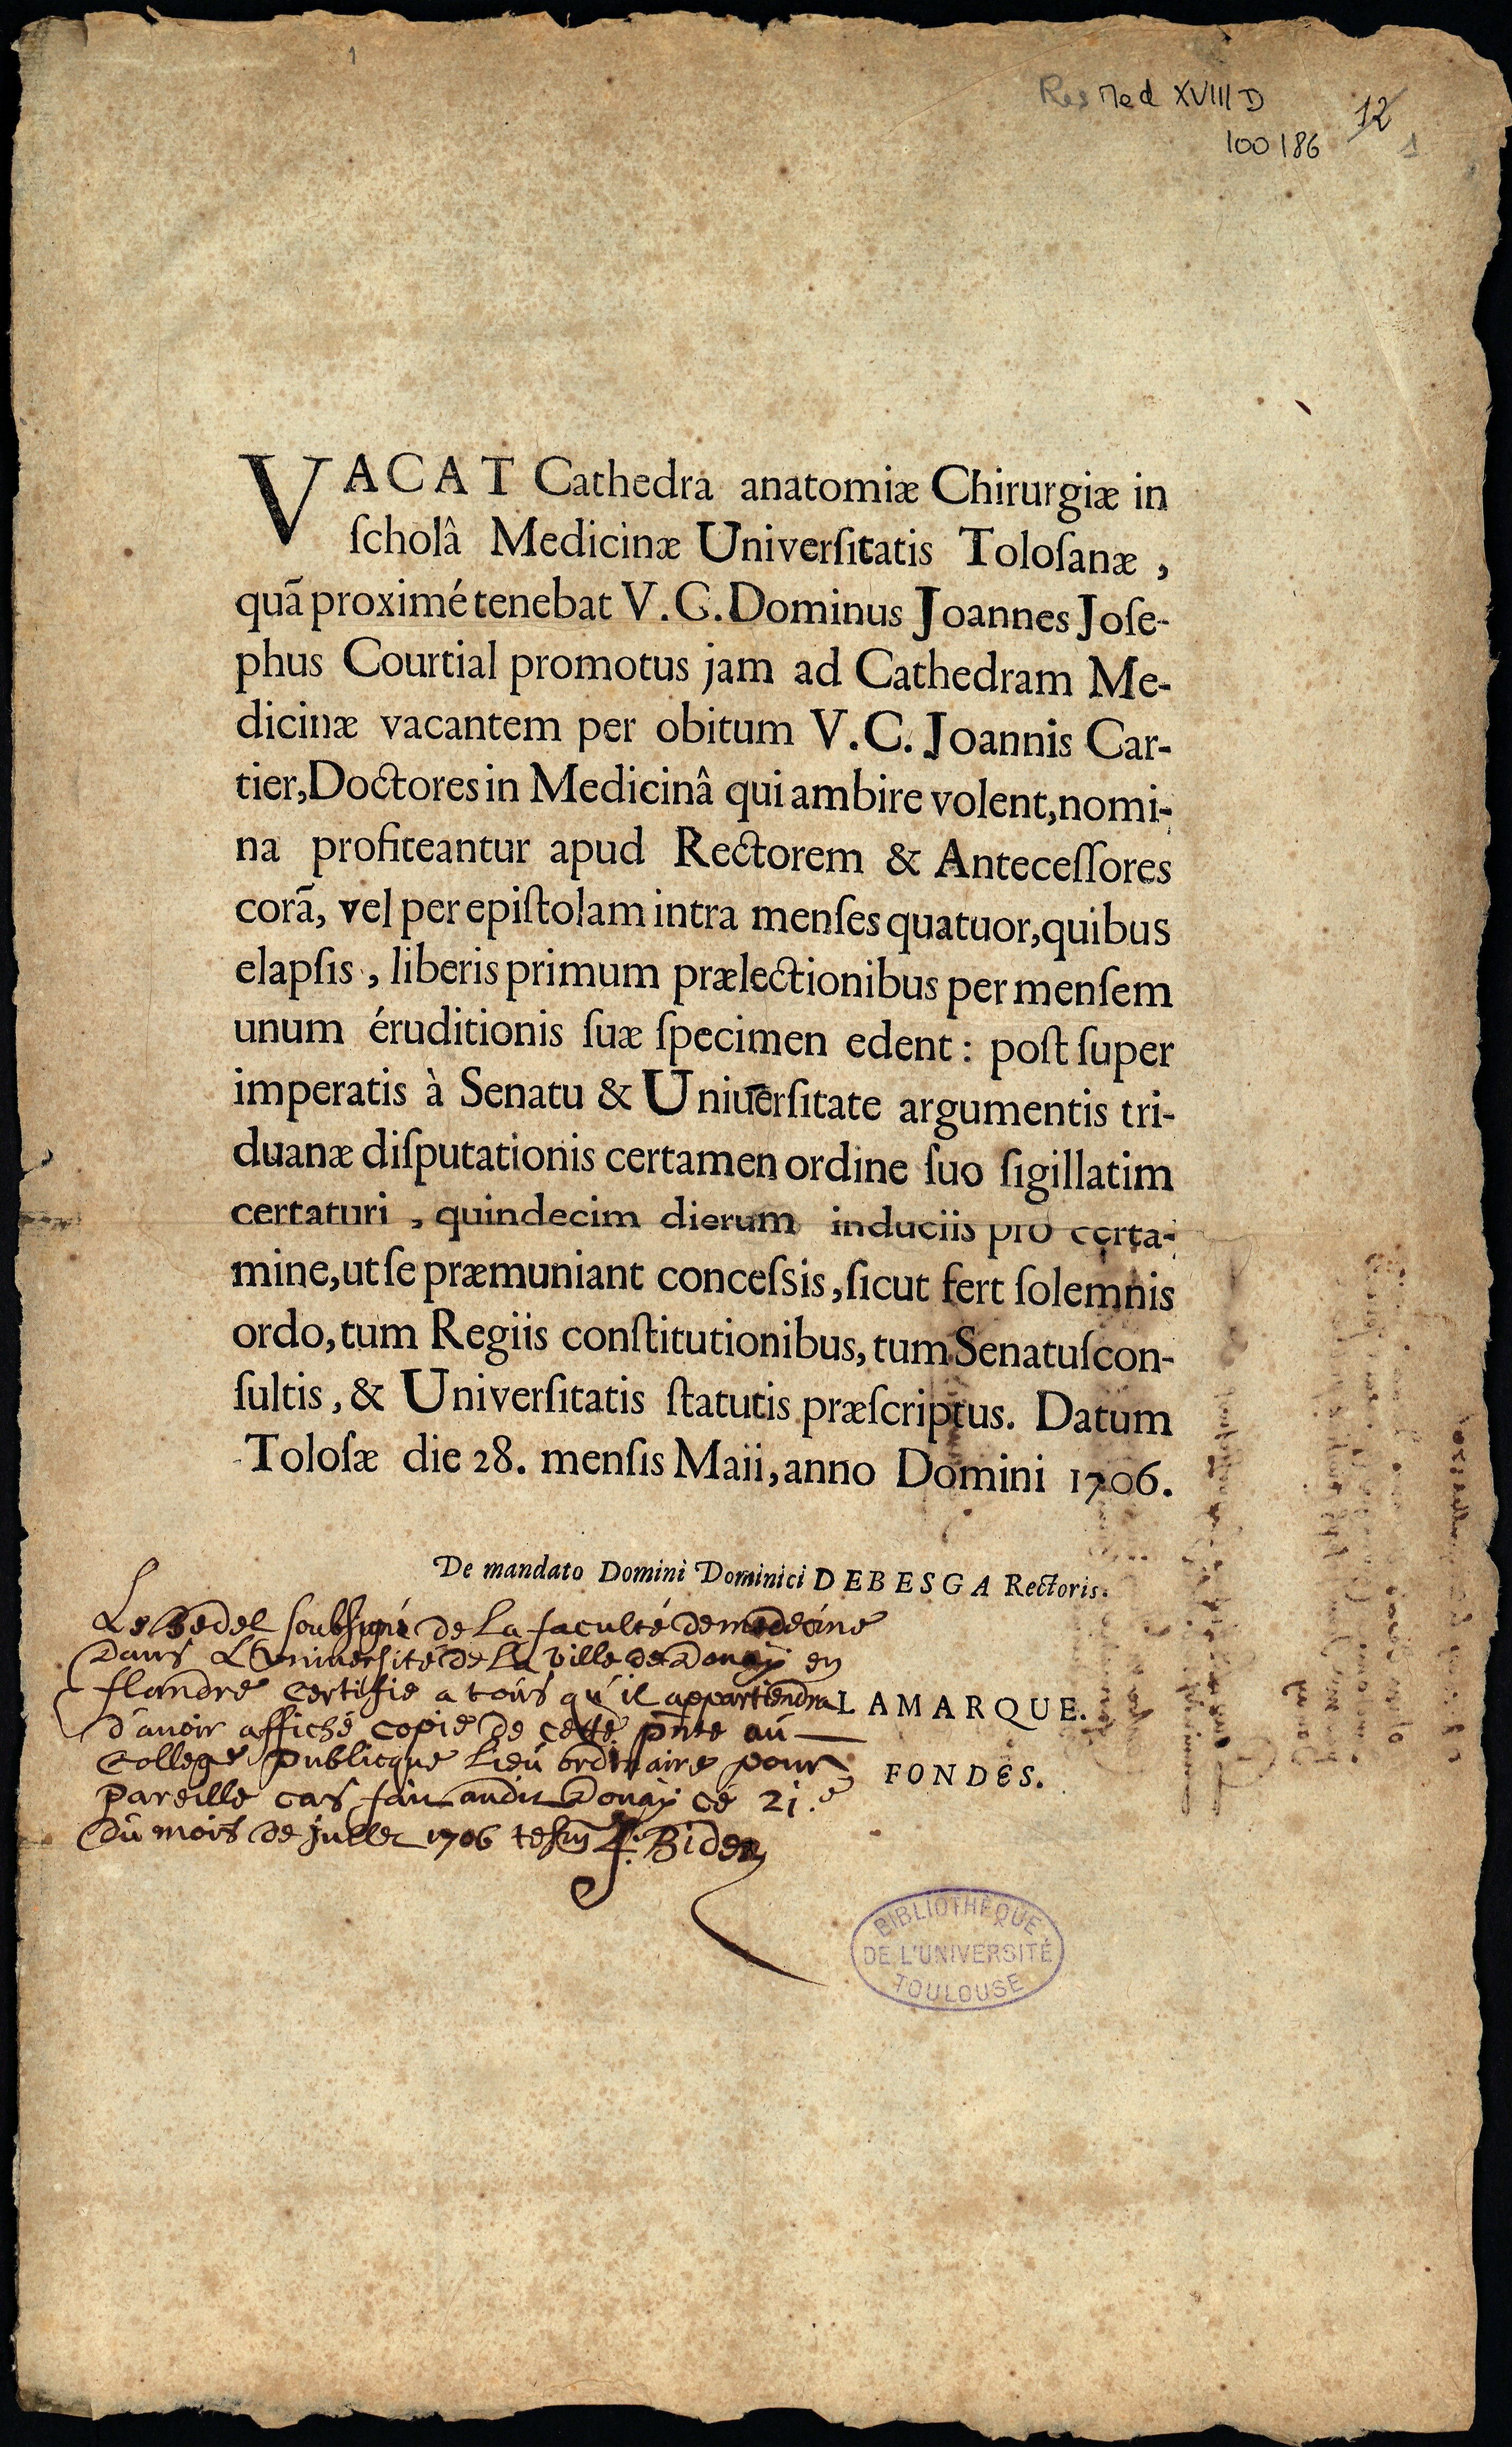 Res Med XVIII D
12
100186
1
1
VACAT Cathedra anatomiæ Chirurgiæ in
ſcholâ Medicinæ Univerſitatis Toloſanæ ,
quā proximé tenebat V. G. Dominus Joannes Joſe-
phus Courtial promotus jam ad Cathedram Me-
dicinæ vacantem per obitum V. C. Joannis Car-
tier, Doctores in Medicinâ qui ambire volent, nomi-
na profiteantur apud Rectorem & Anteceſſores
corā, vel per epiſtolam intra menſes quatuor, quibus
elapſis , liberis primum prælectionibus per menſem
unum éruditionis ſuæ ſpecimen edent : poſt ſuper
imperatis à Senatu & Univerſitate argumentis tri-
duanæ diſputationis certamen ordine ſuo ſigillatim
certaturi , quindecim dierum induciis pro certa-
mine, ut ſe præmuniant conceſsis, ſicut fert ſolemnis
ordo, tum Regiis conſtitutionibus, tum Senatuſcon-
ſultis, & Univerſitatis ſtatutis præſcriptus. Datum
Toloſæ die 28. menſis Maii, anno Domini 1706.
De mandato Domini Dominici DEBESGA Rectoris.
Le bedel soubsigné de la faculté de medecine
dans L'université de la ville de Douay en
flandre certifie a tous qu'il appartiendra
LAMARQUE.
d'avoir affiché copie de cette pnte au
college publicque lieu ordinaire pour
FONDÉS.
pareille cas fait audit Douay ce 21.e
du mois de jullet 1706 tesm
Bider
BIBLIOTHÈQUE
DE L'UNIVERSITÉ
TOULOUSE